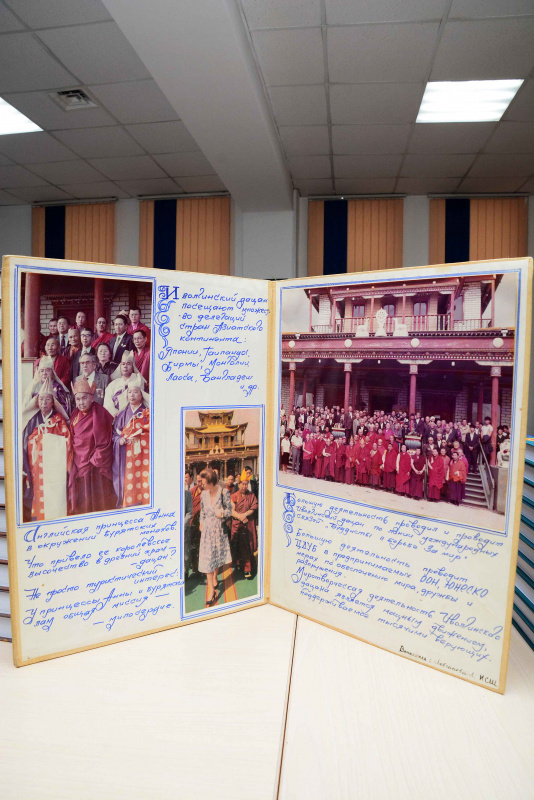 Иволгинский дацан
посещают множест-
во делегаций
стран Азиатского
континента:
Японии, Таиланда,
Бирмы, Монголии
Лаоса, Бангладеш
и др.
Английская принцесса Анна
в окружении бурятских монахов.
Что привело её королевское
высочество в древний храм -
дацан?
Не просто туристический
интерес:
У принцессы Анны и бурятских
лам общая миссия -
- милосердие.
Большую деятельность проводил и проводит
Иволгинский дацан по линии международных
связей "Буддисты в борьбе за мир".
Большую деятельность проводит
ЦДУБ в предпринимаемых ООН, ЮНЕСКО
мерах по обеспечению мира, дружбы и
разоружения.
Миротворческая деятельность Иволгинского
дацана является мощным движением,
поддерживаемое тысячами верующих.
ИСШ